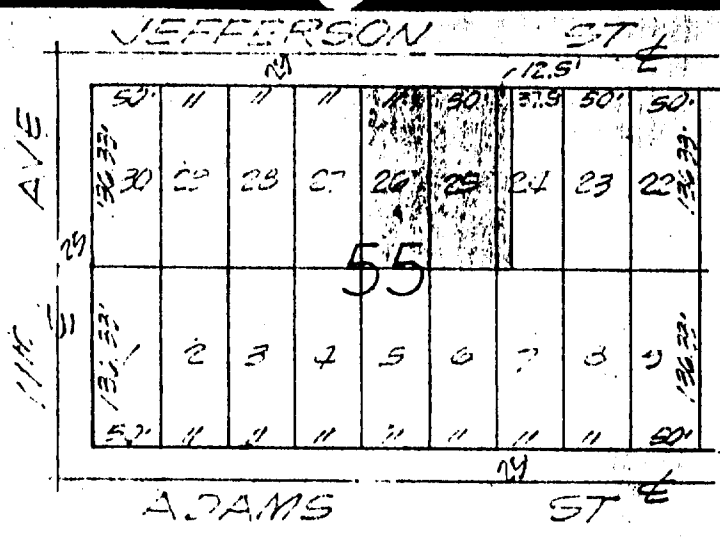 JEFFERSON ST ⅊
12.5'
50' " " " " 50' 37.5 50' 50'
AVE
136.33' 30 29 28 27 26 25 24 23 22 136.33'
55
11th
136.33' 1 2 3 4 5 6 7 8 9 136.33'
50' " " " " " " " 50'
ADAMS ST